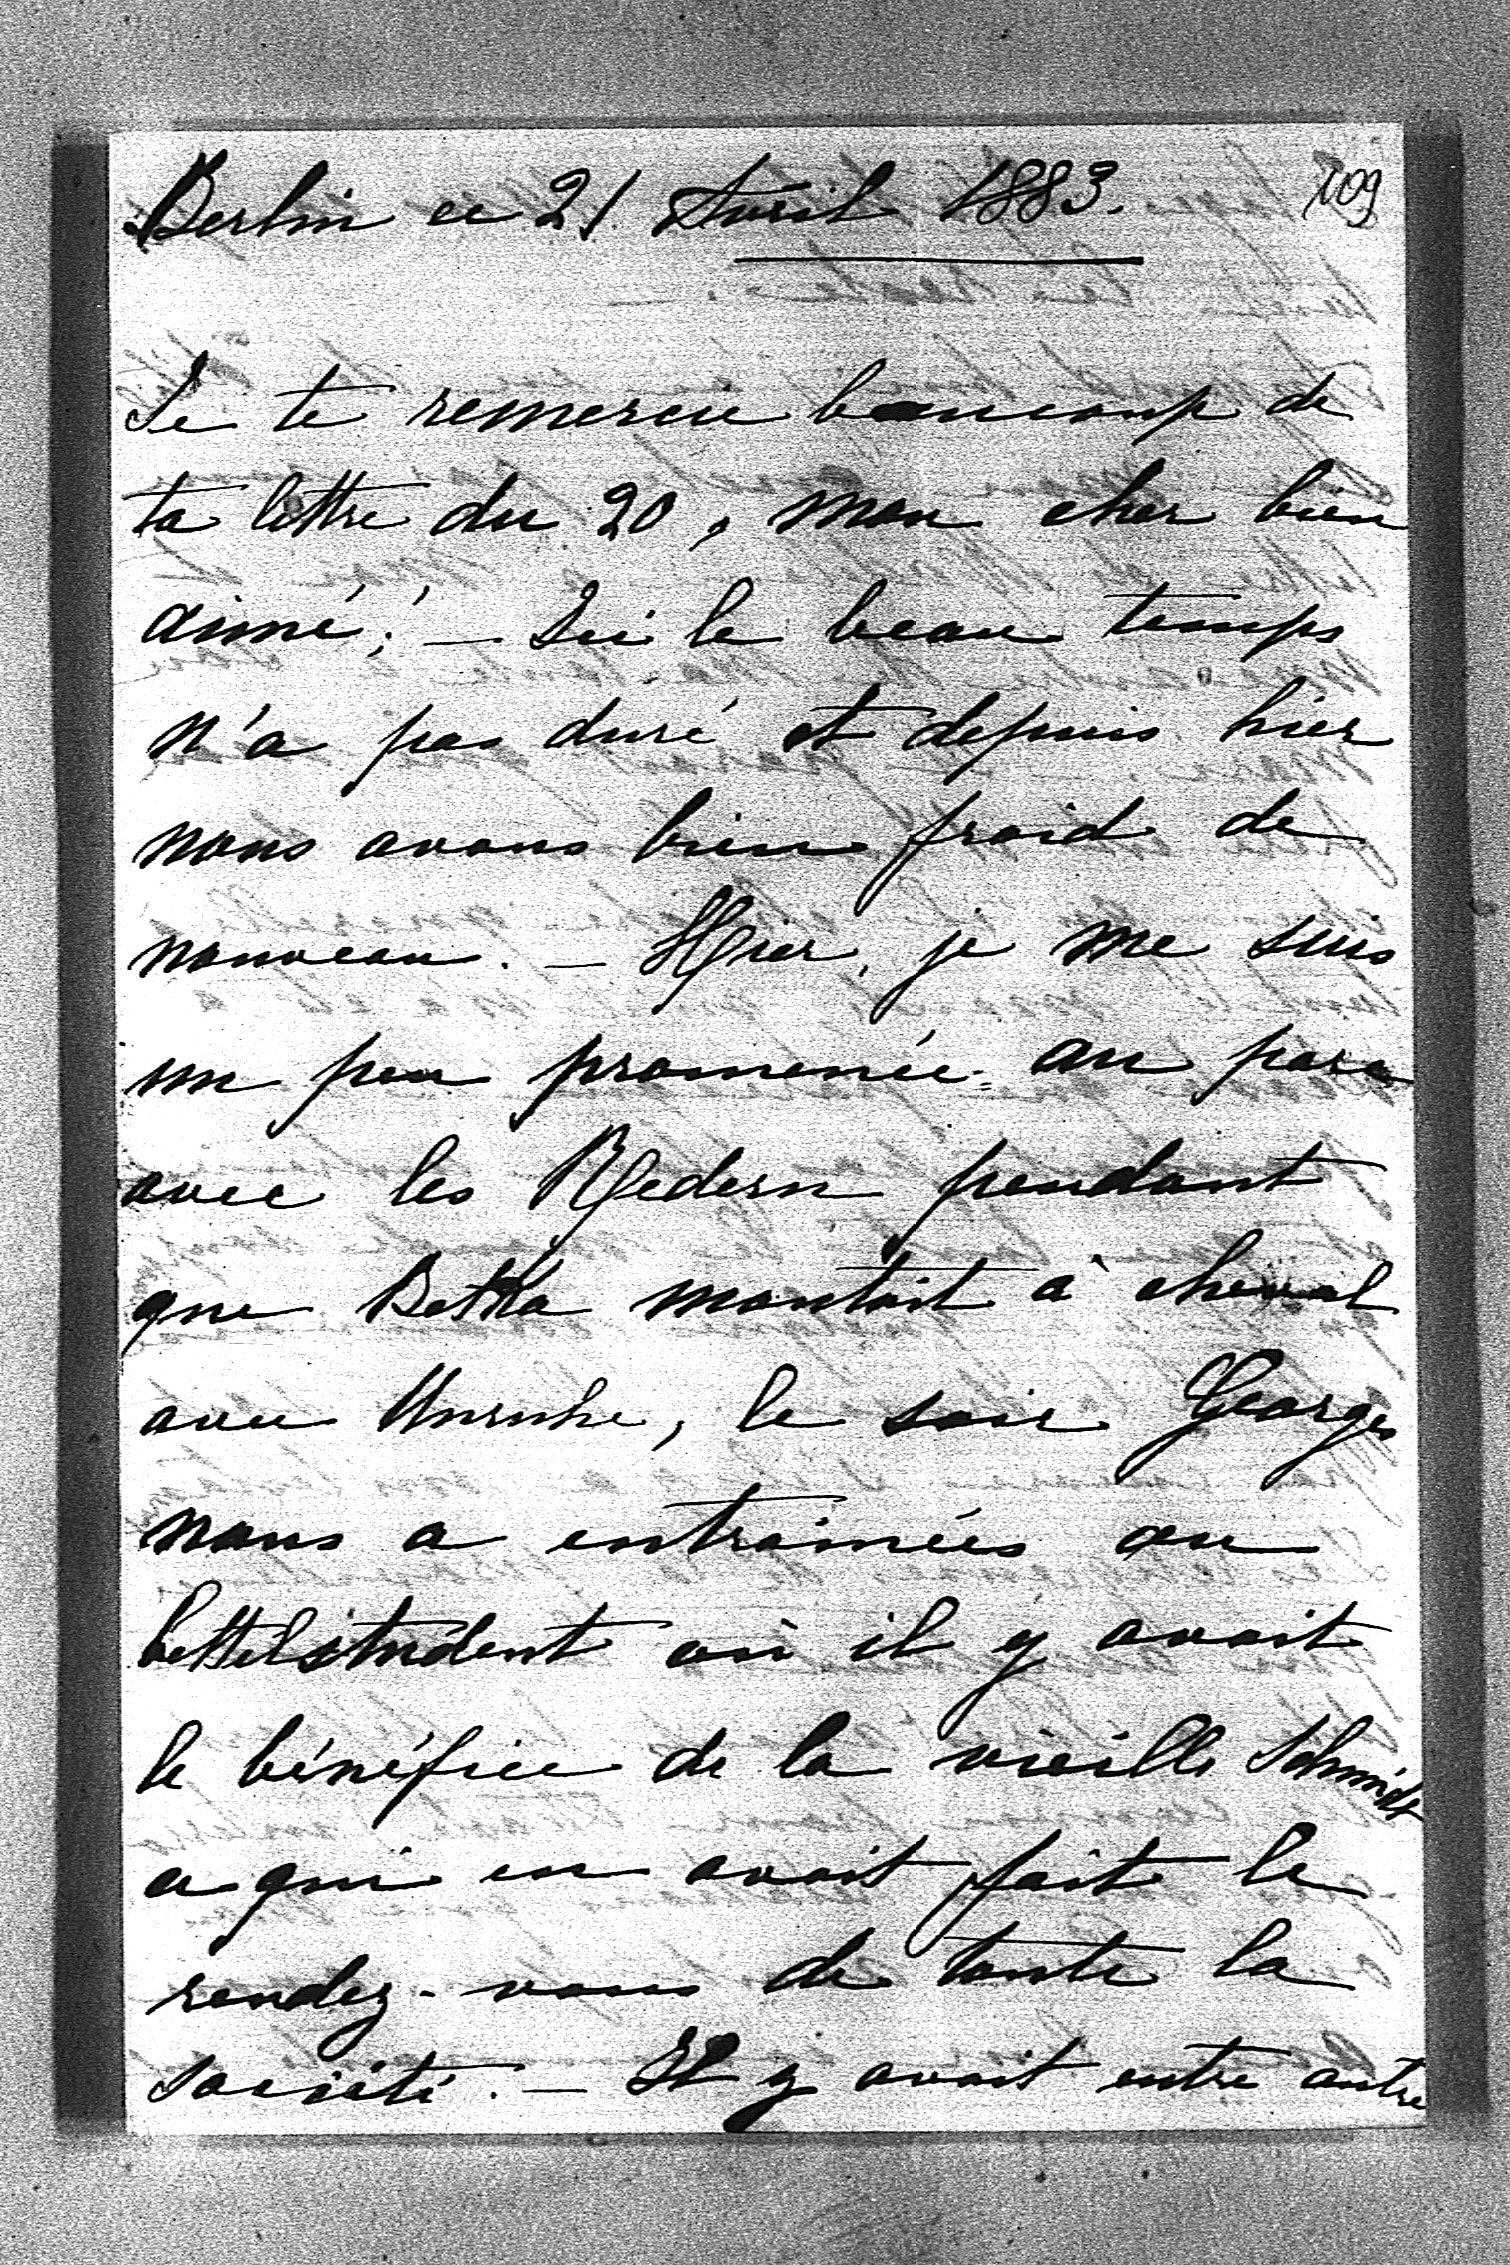 Berlin ce 21 Avril 1883.
109
Je te remercie beaucoup de
ta lettre du 20, mon cher bien
aimé; — Ici le beau temps
n'a pas duré et depuis hier
nous avons bien froid de
nouveau. — Hier, je me suis
un peu promenée au parc
avec les Redern pendant
que Betka montait à cheval
avec Unruhe, le soir Georges
nous a entrainées au
bettelstudent où il y avait
le bénéfice de la vieille Schmidt
a qui on avait fait le
rendez-vous de toute la
société. — Il y avait entre autre